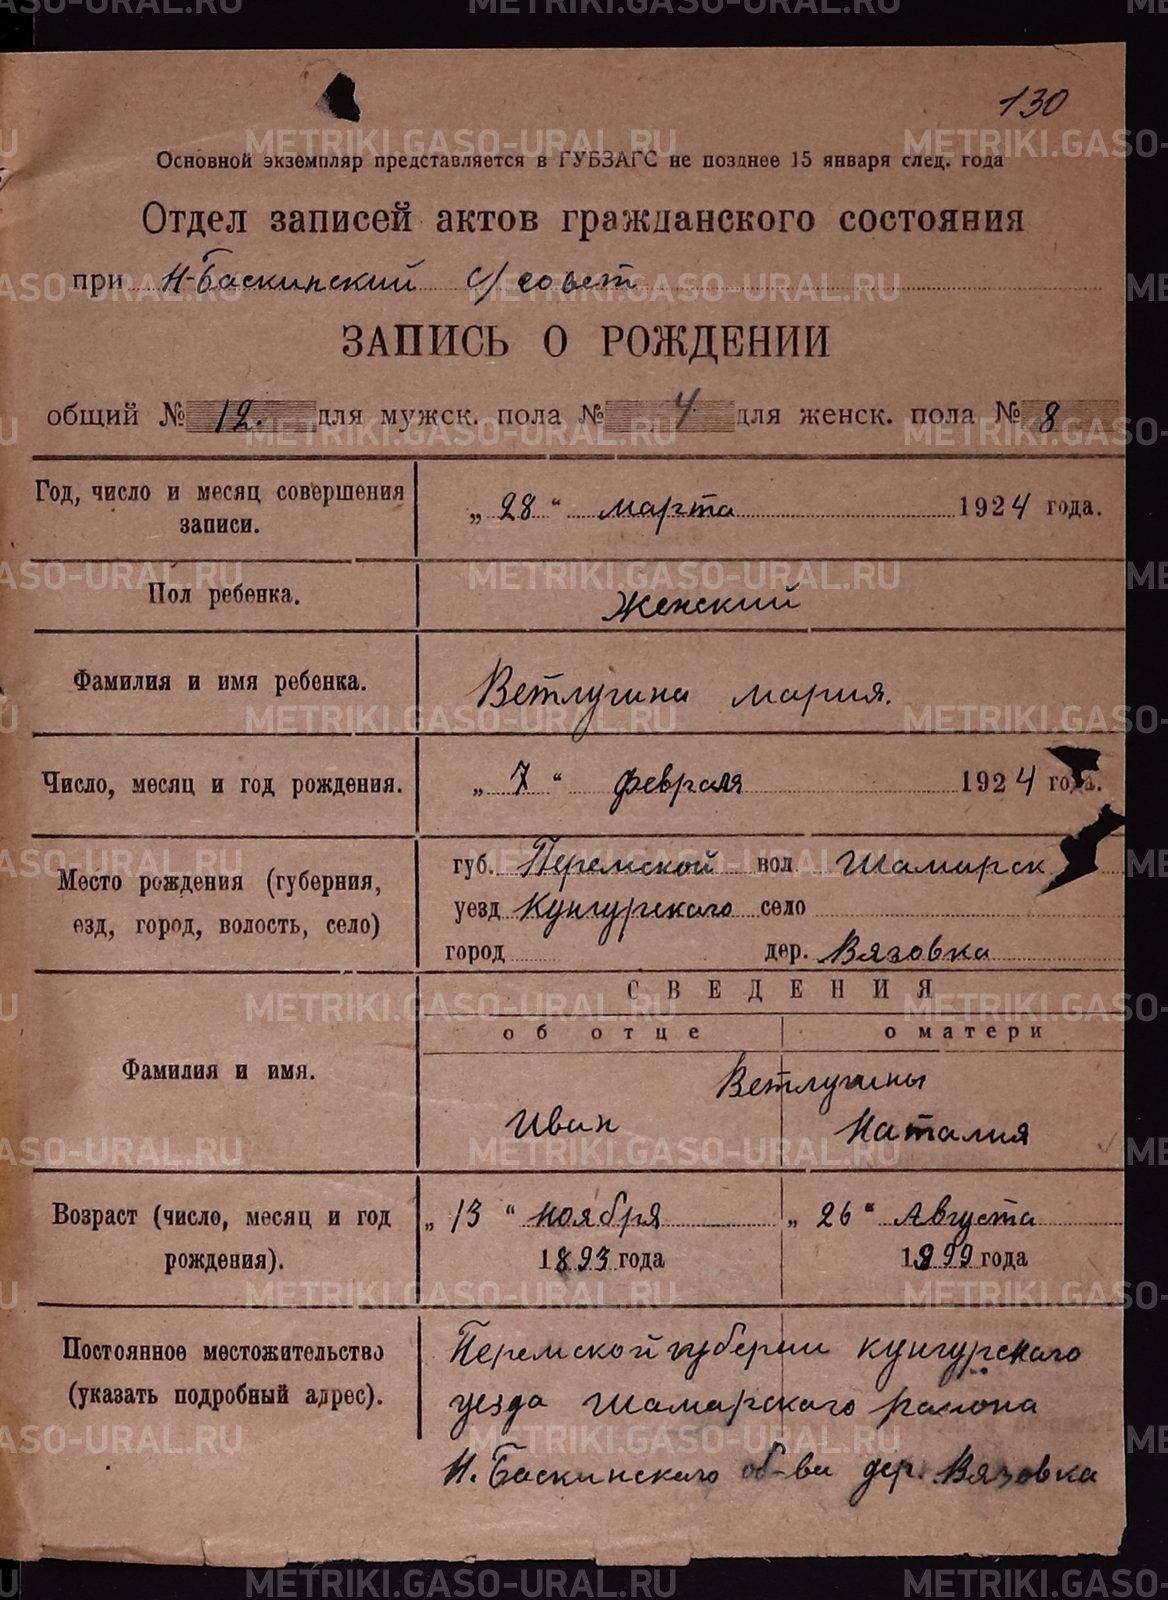 130
Основной экземпляр представляется в ГУБЗАГС не позднее 15 января след. года
Отдел записей актов гражданского состояния
при Н-Баскинский с/совет
ЗАПИСЬ О РОЖДЕНИИ
общий № 12. для мужск. пола № 4 для женск. пола № 8
Год, число и месяц совершения записи.
„ 28 “ марта 1924 года.
Пол ребенка.
Женский
Фамилия и имя ребенка.
Ветлугина Мария.
Число, месяц и год рождения.
„ 7 “ февраля 1924 года.
Место рождения (губерния,
езд, город, волость, село)
губ. Перемской вол Шамарск
уезд Кунгурского село
город дер. Вязовка
СВЕДЕНИЯ
об отце о матери
Фамилия и имя.
Ветлугины
Иван Наталия
Возраст (число, месяц и год
рождения).
„ 13 “ ноября „ 26 “ Августа
1893 года 1899 года
Постоянное местожительство
(указать подробный адрес).
Перемской губернии кунгурского
уезда Шамарского района
Н. Баскинского об-ва дер. Вязовка
METRIKI.GASO-URAL.RU